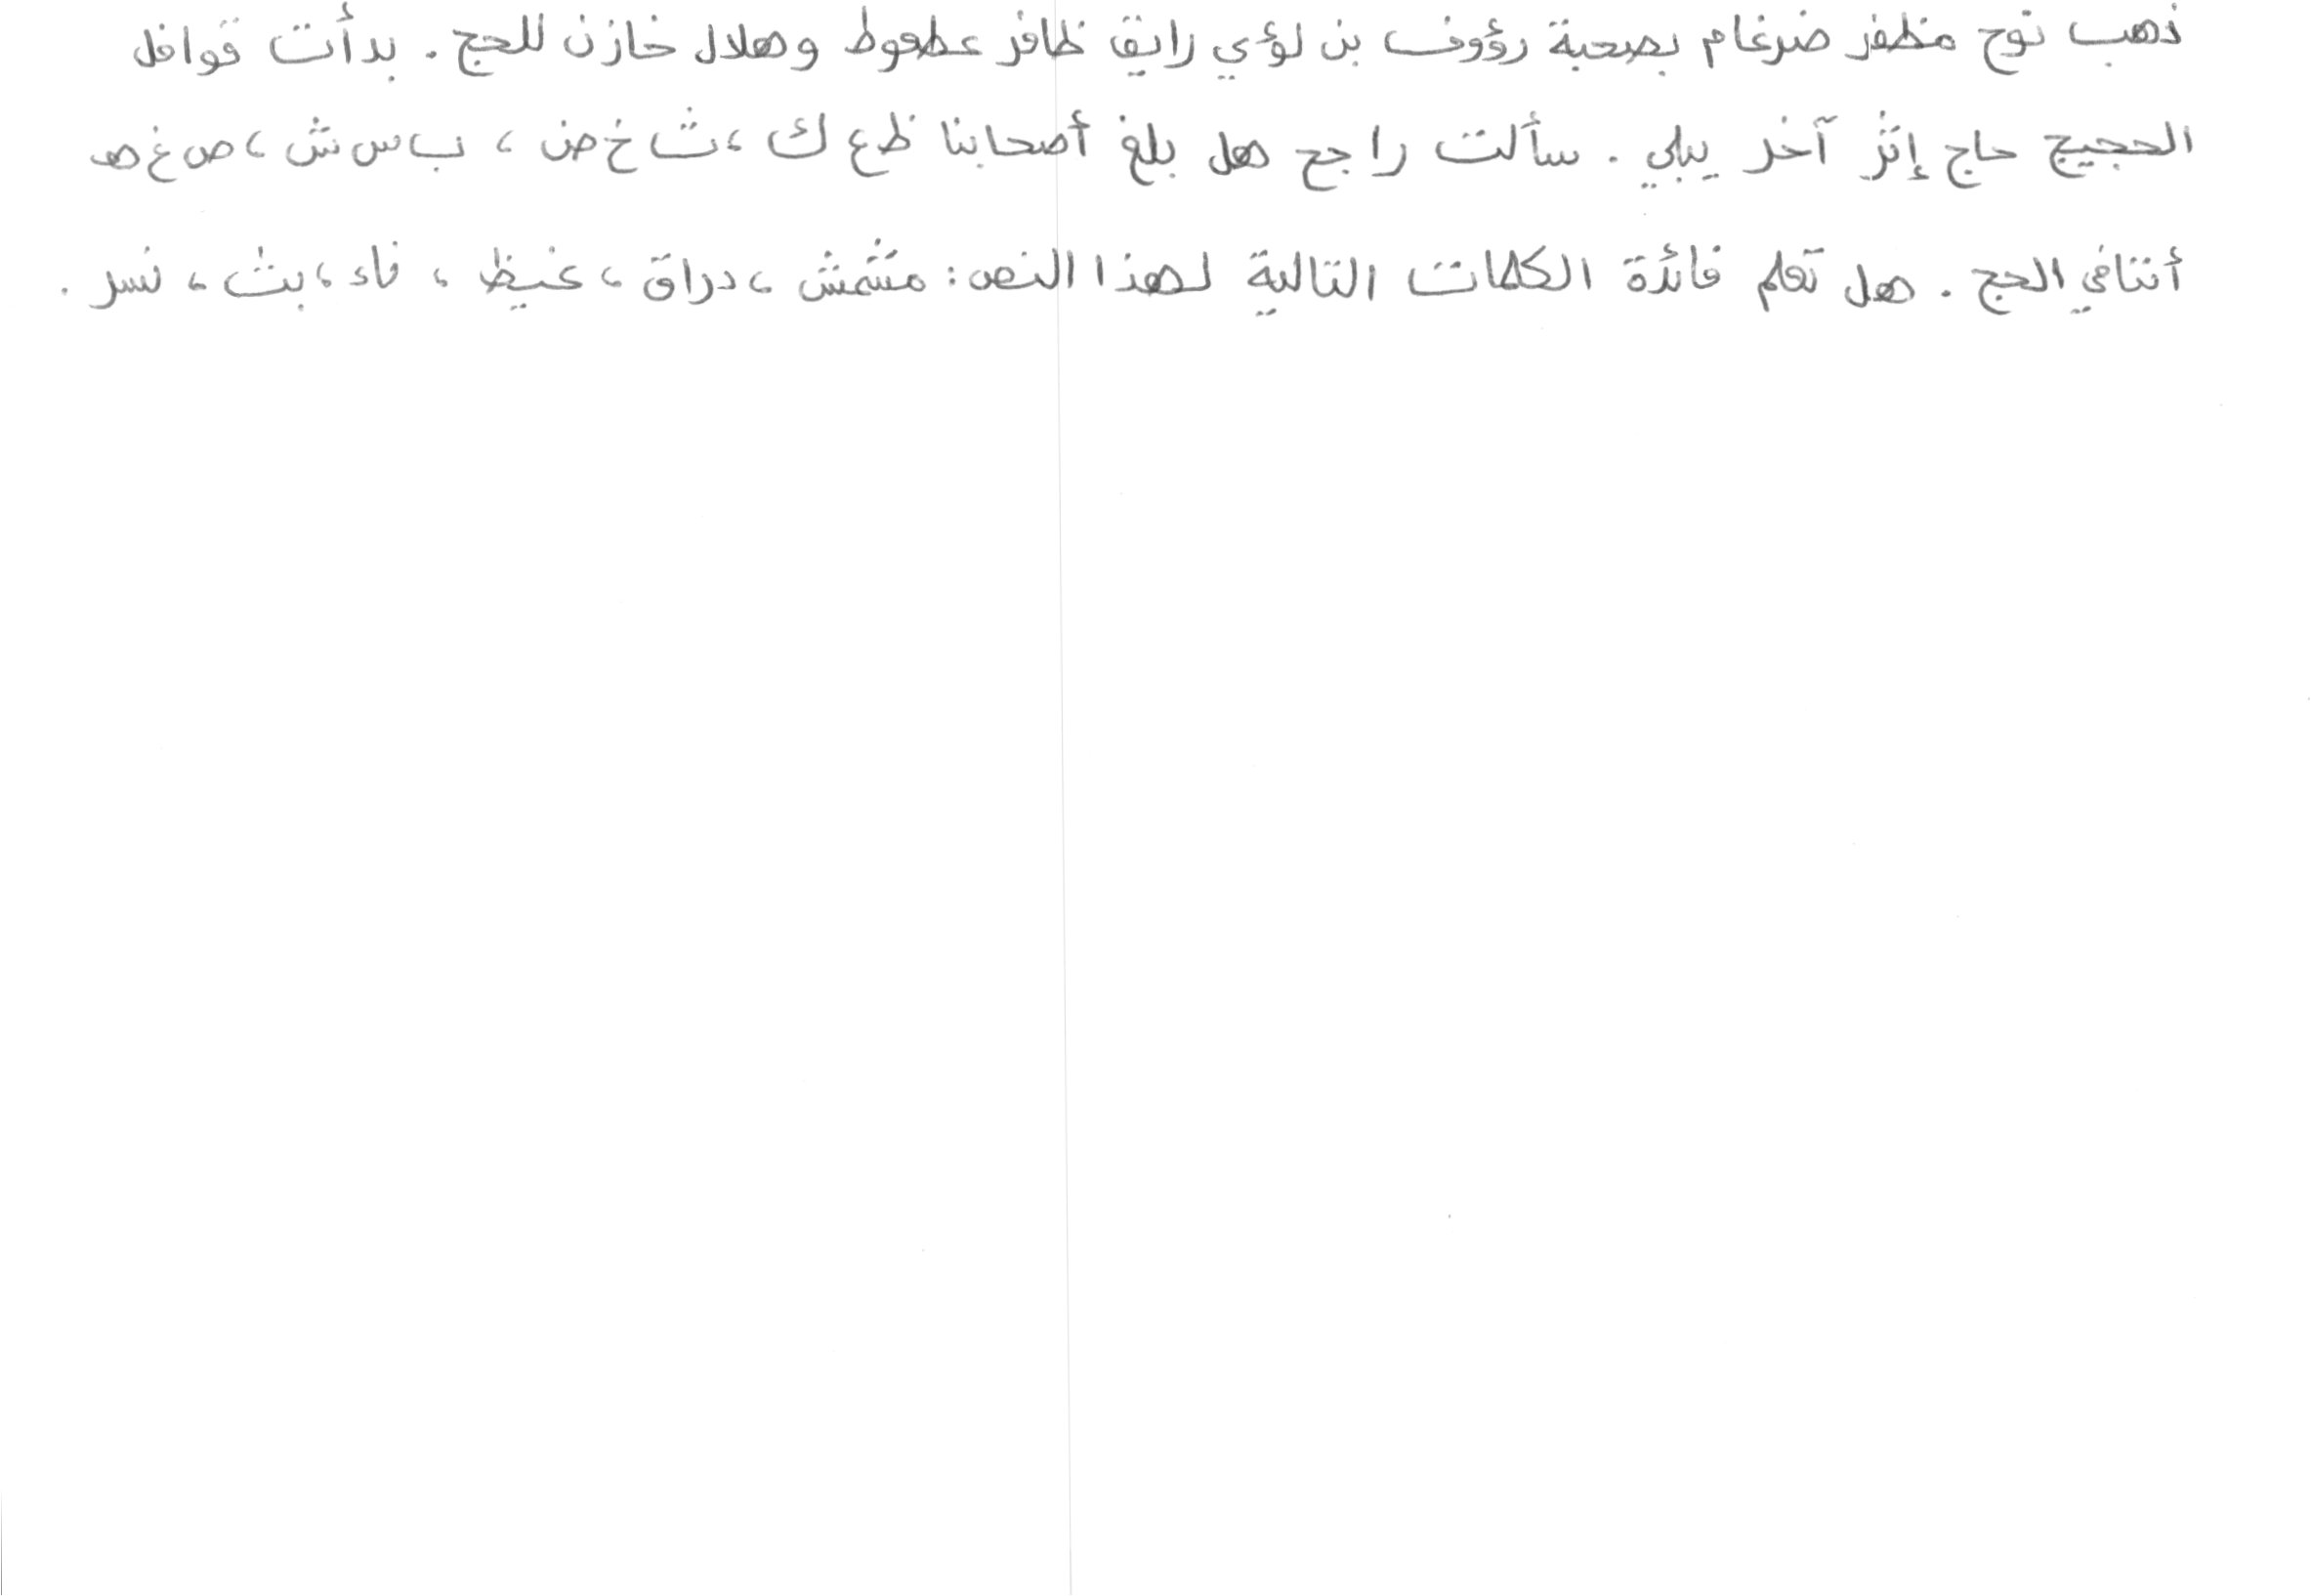 ذهب نوح مظفر ضرغام بصحبة رؤوف بن لؤي رايق ظافر عطعوط وهلال خازن للحج . بدأت قوافل
الحجيج حاج إثر آخر يبلي . سألت راجح هل بلغ أصحابنا ظ ع ك ، ث خ ض ، ب س ش ، ص غ هـ
أنتافي الحج . هل تعلم فائدة الكلمات التالية لهذا النص : مشمش ، دراق ، غيظ ، ناء ، بث ، نسر .